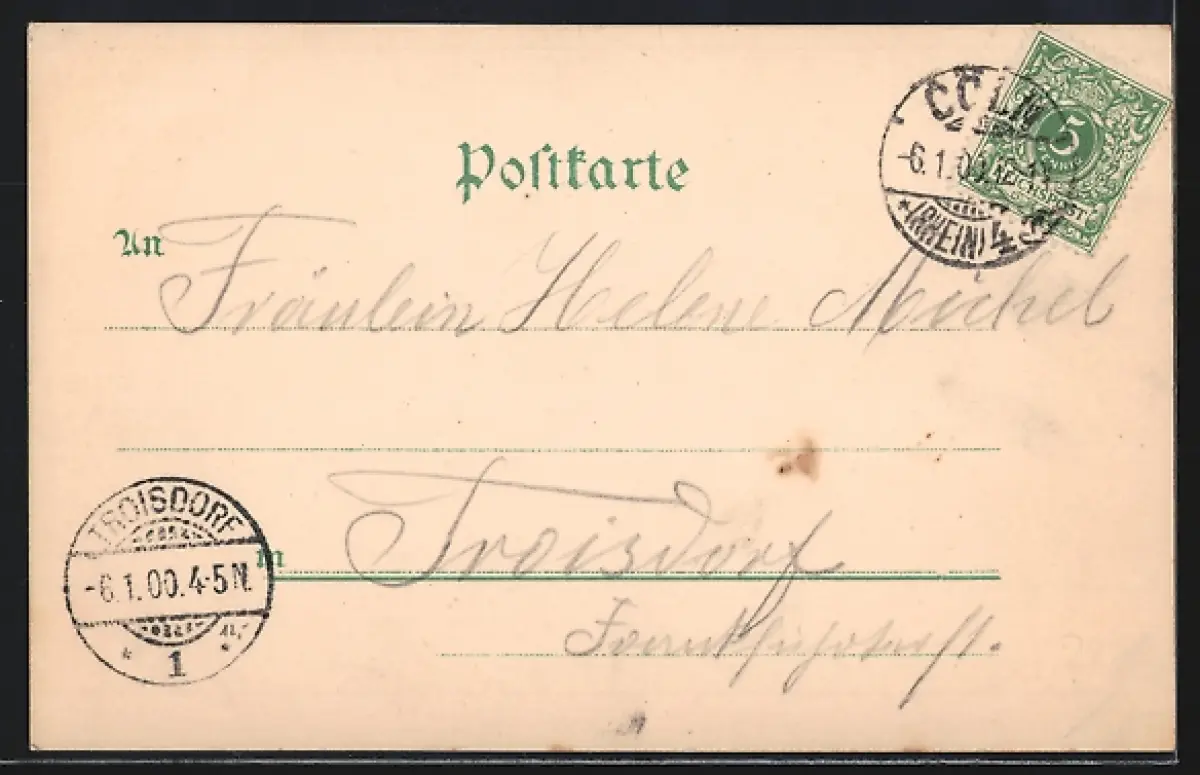 Postkarte
CÖLN
-6.1.00.12-1N.
* (RHEIN) 4
5
PFENNIG
REICHSPOST
An Fräulein Helene Michel
TROISDORF
-6.1.00.4-5N.
* 1 *
in Troisdorf
Frankfurterst.